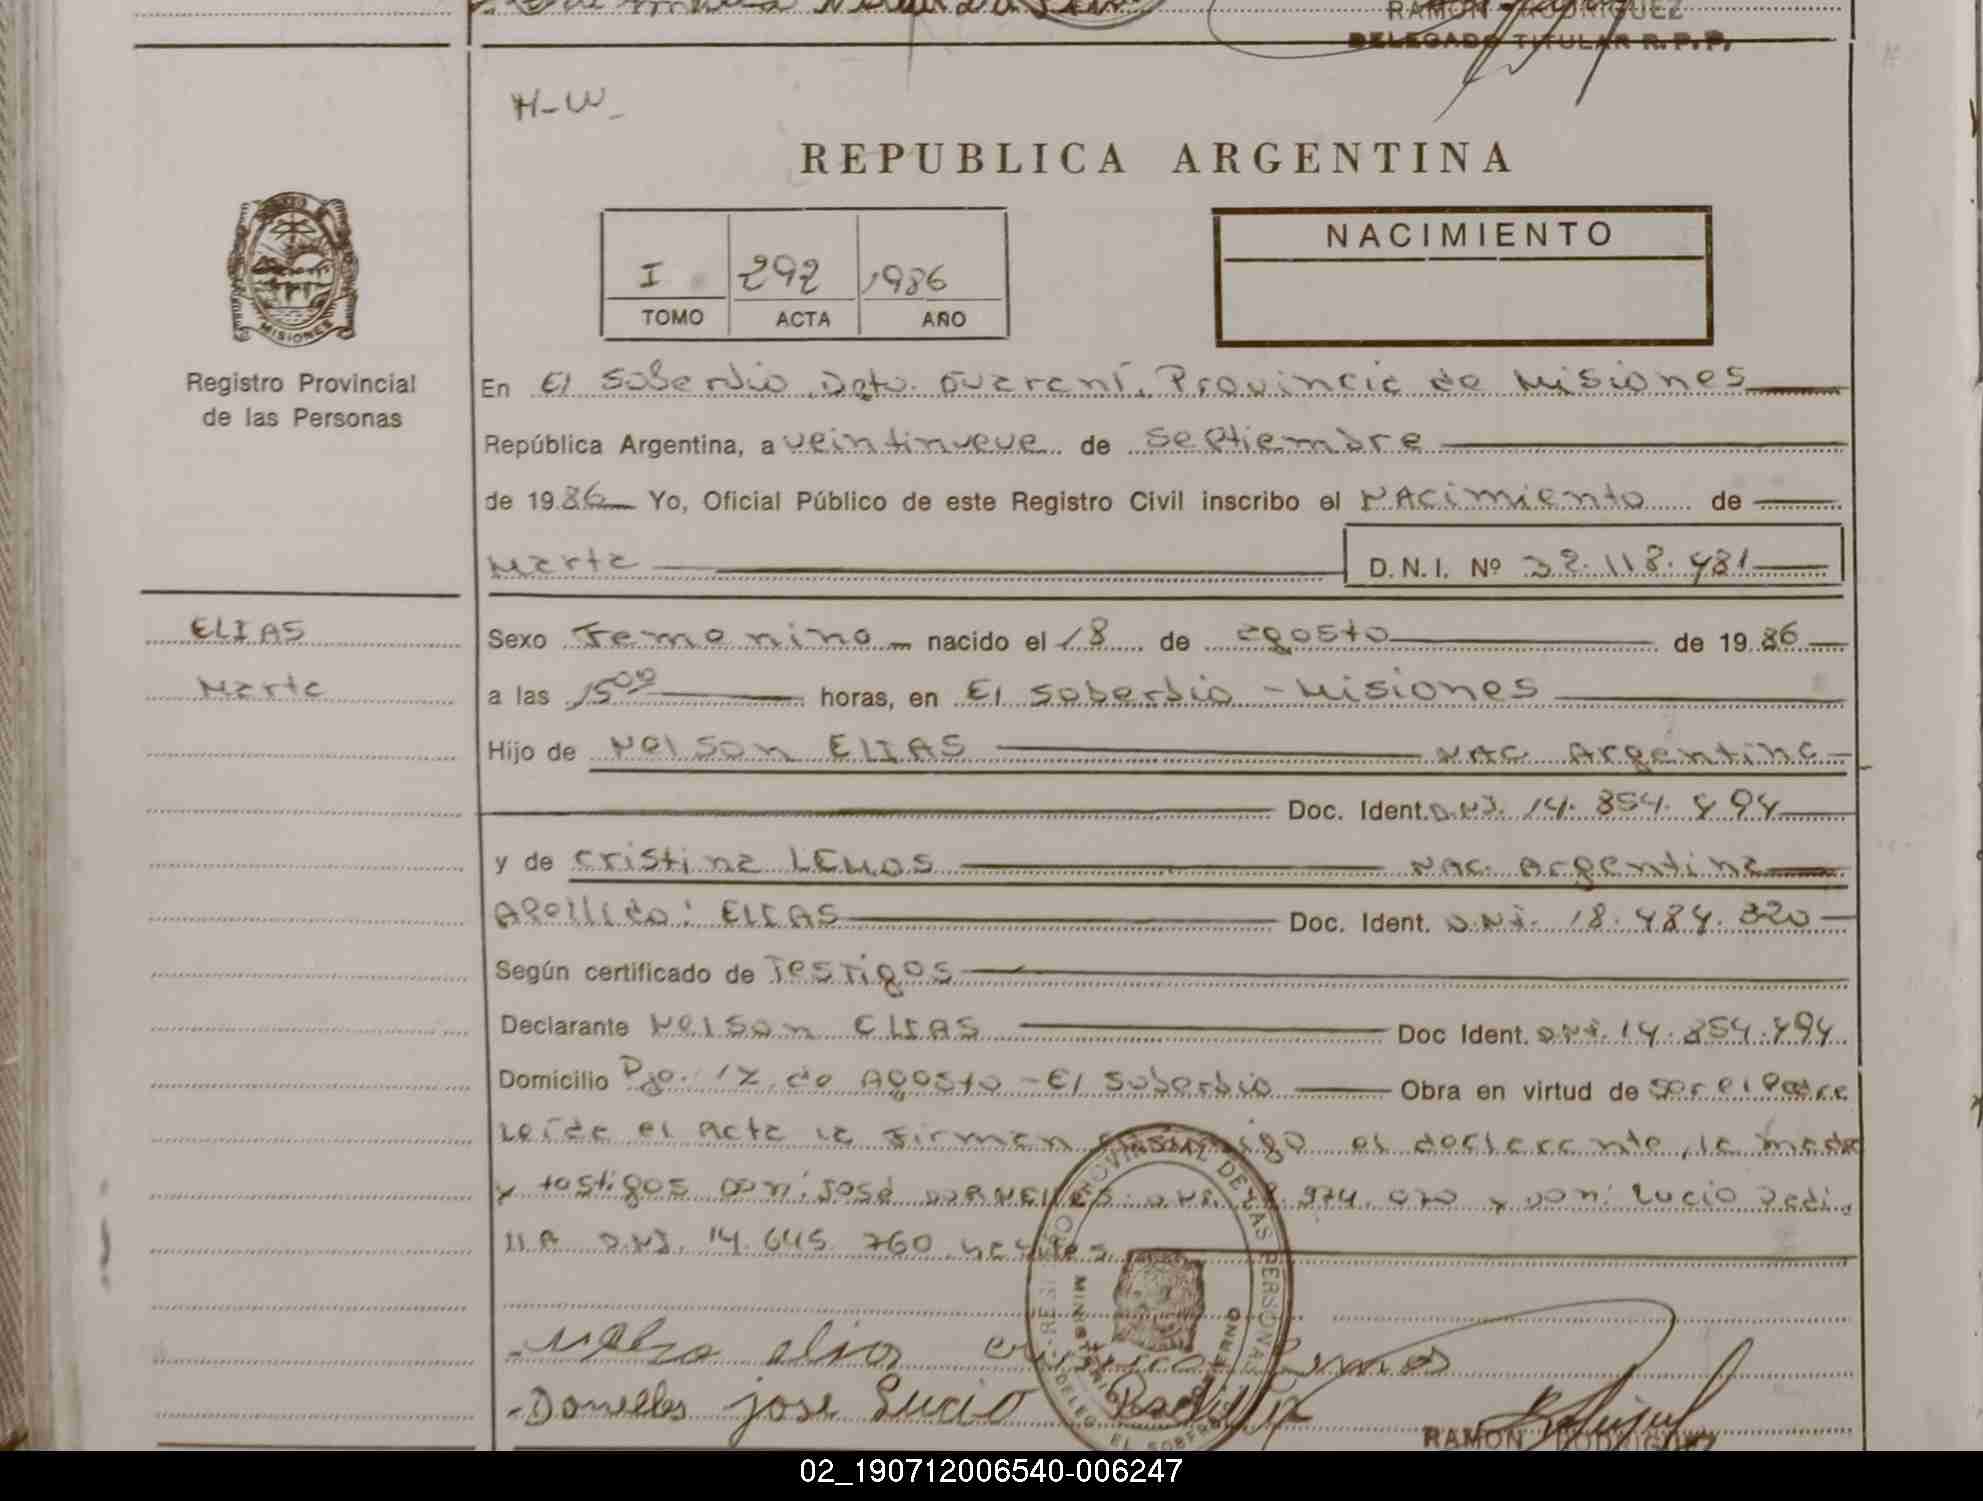 RAMON RODRIGUEZ
DELEGADO TITULAR R.P.P.
H-W-
REPUBLICA ARGENTINA
MISIONES
Registro Provincial
de las Personas
I 292 1986
TOMO ACTA AÑO
NACIMIENTO
En El Soberbio, Dpto. Guaraní, Provincia de Misiones
República Argentina, a veintinueve de septiembre
de 1986 Yo, Oficial Público de este Registro Civil inscribo el NAcimiento de
Marta D.N.I. Nº 32.118.481
ELIAS
Marta
Sexo Femenino nacido el 18 de agosto de 1986
a las 15 00 horas, en El Soberbio - Misiones
Hijo de Nelson ELIAS NAC. Argentina
Doc. Ident. D.N.I. 14.854.494
y de Cristina LEMOS NAC. Argentina
Apellido: ELIAS Doc. Ident. D.N.I. 18.484.320
Según certificado de Testigos
Declarante Nelson ELIAS Doc Ident. D.N.I. 14.854.494
Domicilio Pje. 17 de Agosto - El Soberbio Obra en virtud de ser el Padre
Leída el Acta la firman conmigo el declarante, la madre
y testigos Don: José DORNELLES D.N.I. 974.070 y Don: Lucio Padi.
lla D.N.I. 14.645.760 hábiles
REGISTRO PROVINCIAL DE LAS PERSONAS
MINISTERIO GOBIERNO
DELEG. EL SOBERBIO
Nelso elias cristina Lemos
Dornelles jose Lucio Padilla
RAMON RODRIGUEZ
02_190712006540-006247